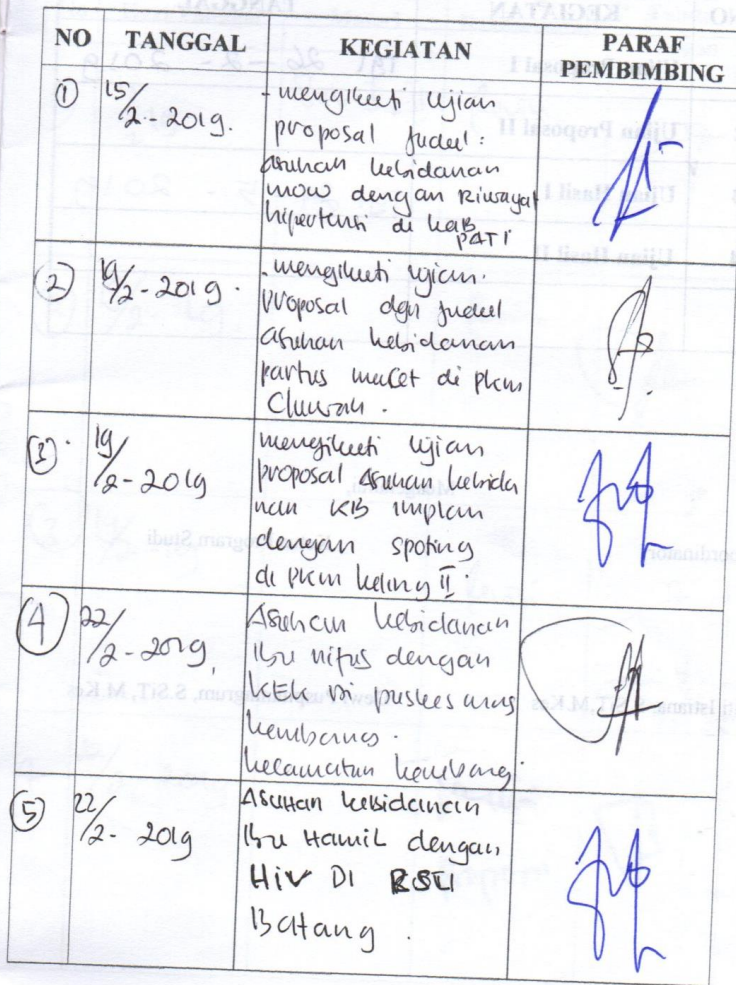 NO TANGGAL KEGIATAN PARAF PEMBIMBING
① 15/2-2019. - mengikuti Ujian
proposal judul :
asuhan kebidanan
mow dengan Riwayat
hipertensi di kab
PATI
② 19/2-2019. - mengikuti ujian.
proposal dgn judul
asuhan kebidanan
partus macet di pkm
③ 19/2-2019 mengikuti Ujian
proposal Asuhan kebida
nan KB implan
dengan spoting
di Pkm keling II.
④ 22/2-2019. Asuhan kebidanan
Ibu nifas dengan
KEK di puskesmas
kembang.
kecamatan kembang.
⑤ 22/2-2019 Asuhan kebidanan
Ibu HamiL dengan
HiV DI RSU
Batang .